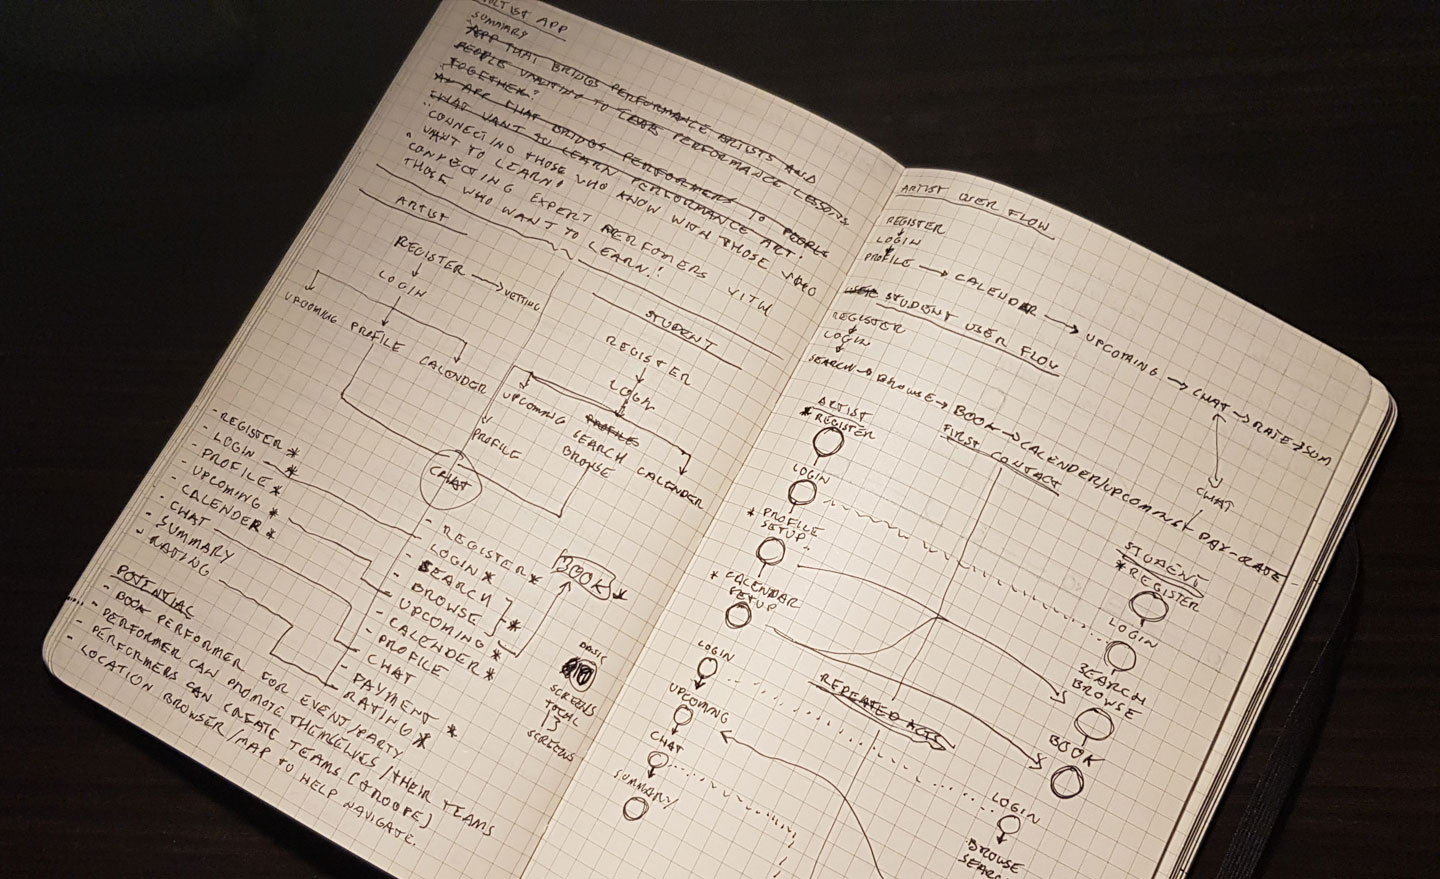 ARTIST APP
SUMMARY
APP THAT BRINGS PERFORMANCE ARTISTS AND
PEOPLE WANTING TO PERFORMANCE LESSONS
TOGETHER!
AN APP THAT BRIDGS PERFORMERS TO PEOPLE
THAT WANT TO LEARN PERFORMANCE ART!
CONNECTING THOSE WHO KNOW WITH THOSE WHO
WANT TO LEARN!
CONECTING EXPERT PERFOMERS WITH
THOSE WHO WANT TO LEARN!!
ARTIST
REGISTER → VETTING
LOGIN
UPCOMING PROFILE CALENDER
STUDENT
REGISTER
LOGIN
UPCOMING PROFILE
PROFILE SEARCH BROWSE CALENDER
CHAT
- REGISTER *
- LOGIN *
- PROFILE *
- UPCOMING *
- CALENDER *
- CHAT
- SUMMARY
- RATING
- REGISTER *
- LOGIN *
- SEARCH
- BROWSE *
- UPCOMING *
- CALENDER *
- PROFILE *
- CHAT
- PAYMENT *
- RATING *
BOOK
BASIC
SCREENS
TOTAL
13
SCREENS
POTENTIAL
- BOOK PERFORMER FOR EVENT/PARTY
- PERFORMER CAN PROMOTE THEMSELVES/THEIR TEAMS
- PERFORMERS CAN CREATE TEAMS (TROOPE)
- LOCATION BROWSER/MAP TO HELP NAVIGATE.
ARTIST USER FLOW
REGISTER
LOGIN
PROFILE → CALENDER → UPCOMING → CHAT → RATE → SUM
USER STUDENT USER FLOW
REGISTER
LOGIN
SEARCH → BROWSE → BOOK → CALENDER/UPCOMING PAY-RATE
CHAT
FIRST CONTACT
ARTIST
* REGISTER
LOGIN
* PROFILE
SETUP
* CALENDAR
SETUP
LOGIN
UPCOMING
CHAT
SUMMARY
REPEATED ACTS
STUDENT
* REGISTER
LOGIN
SEARCH
BROWSE
BOOK
LOGIN
BROWSE